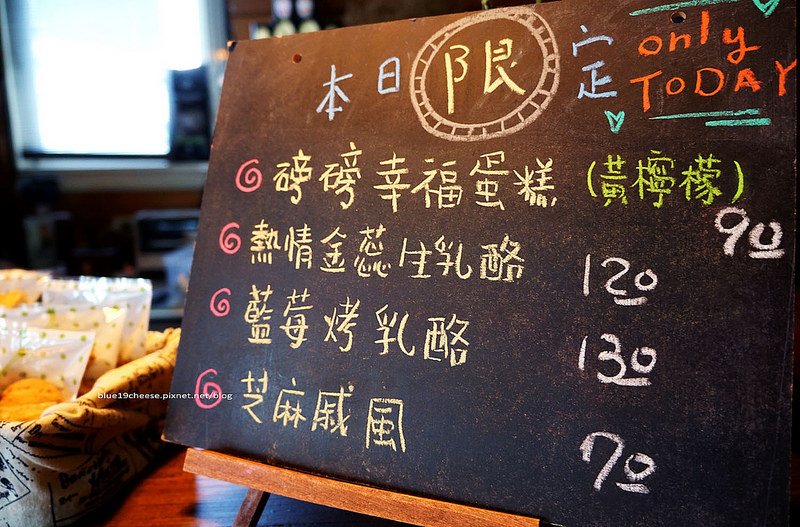 本日限定 only TODAY
磅磅幸福蛋糕 (黃檸檬) 90
熱情金蕊生乳酪 120
藍莓烤乳酪 130
芝麻戚風 70
blue19cheese.pixnet.net/blog